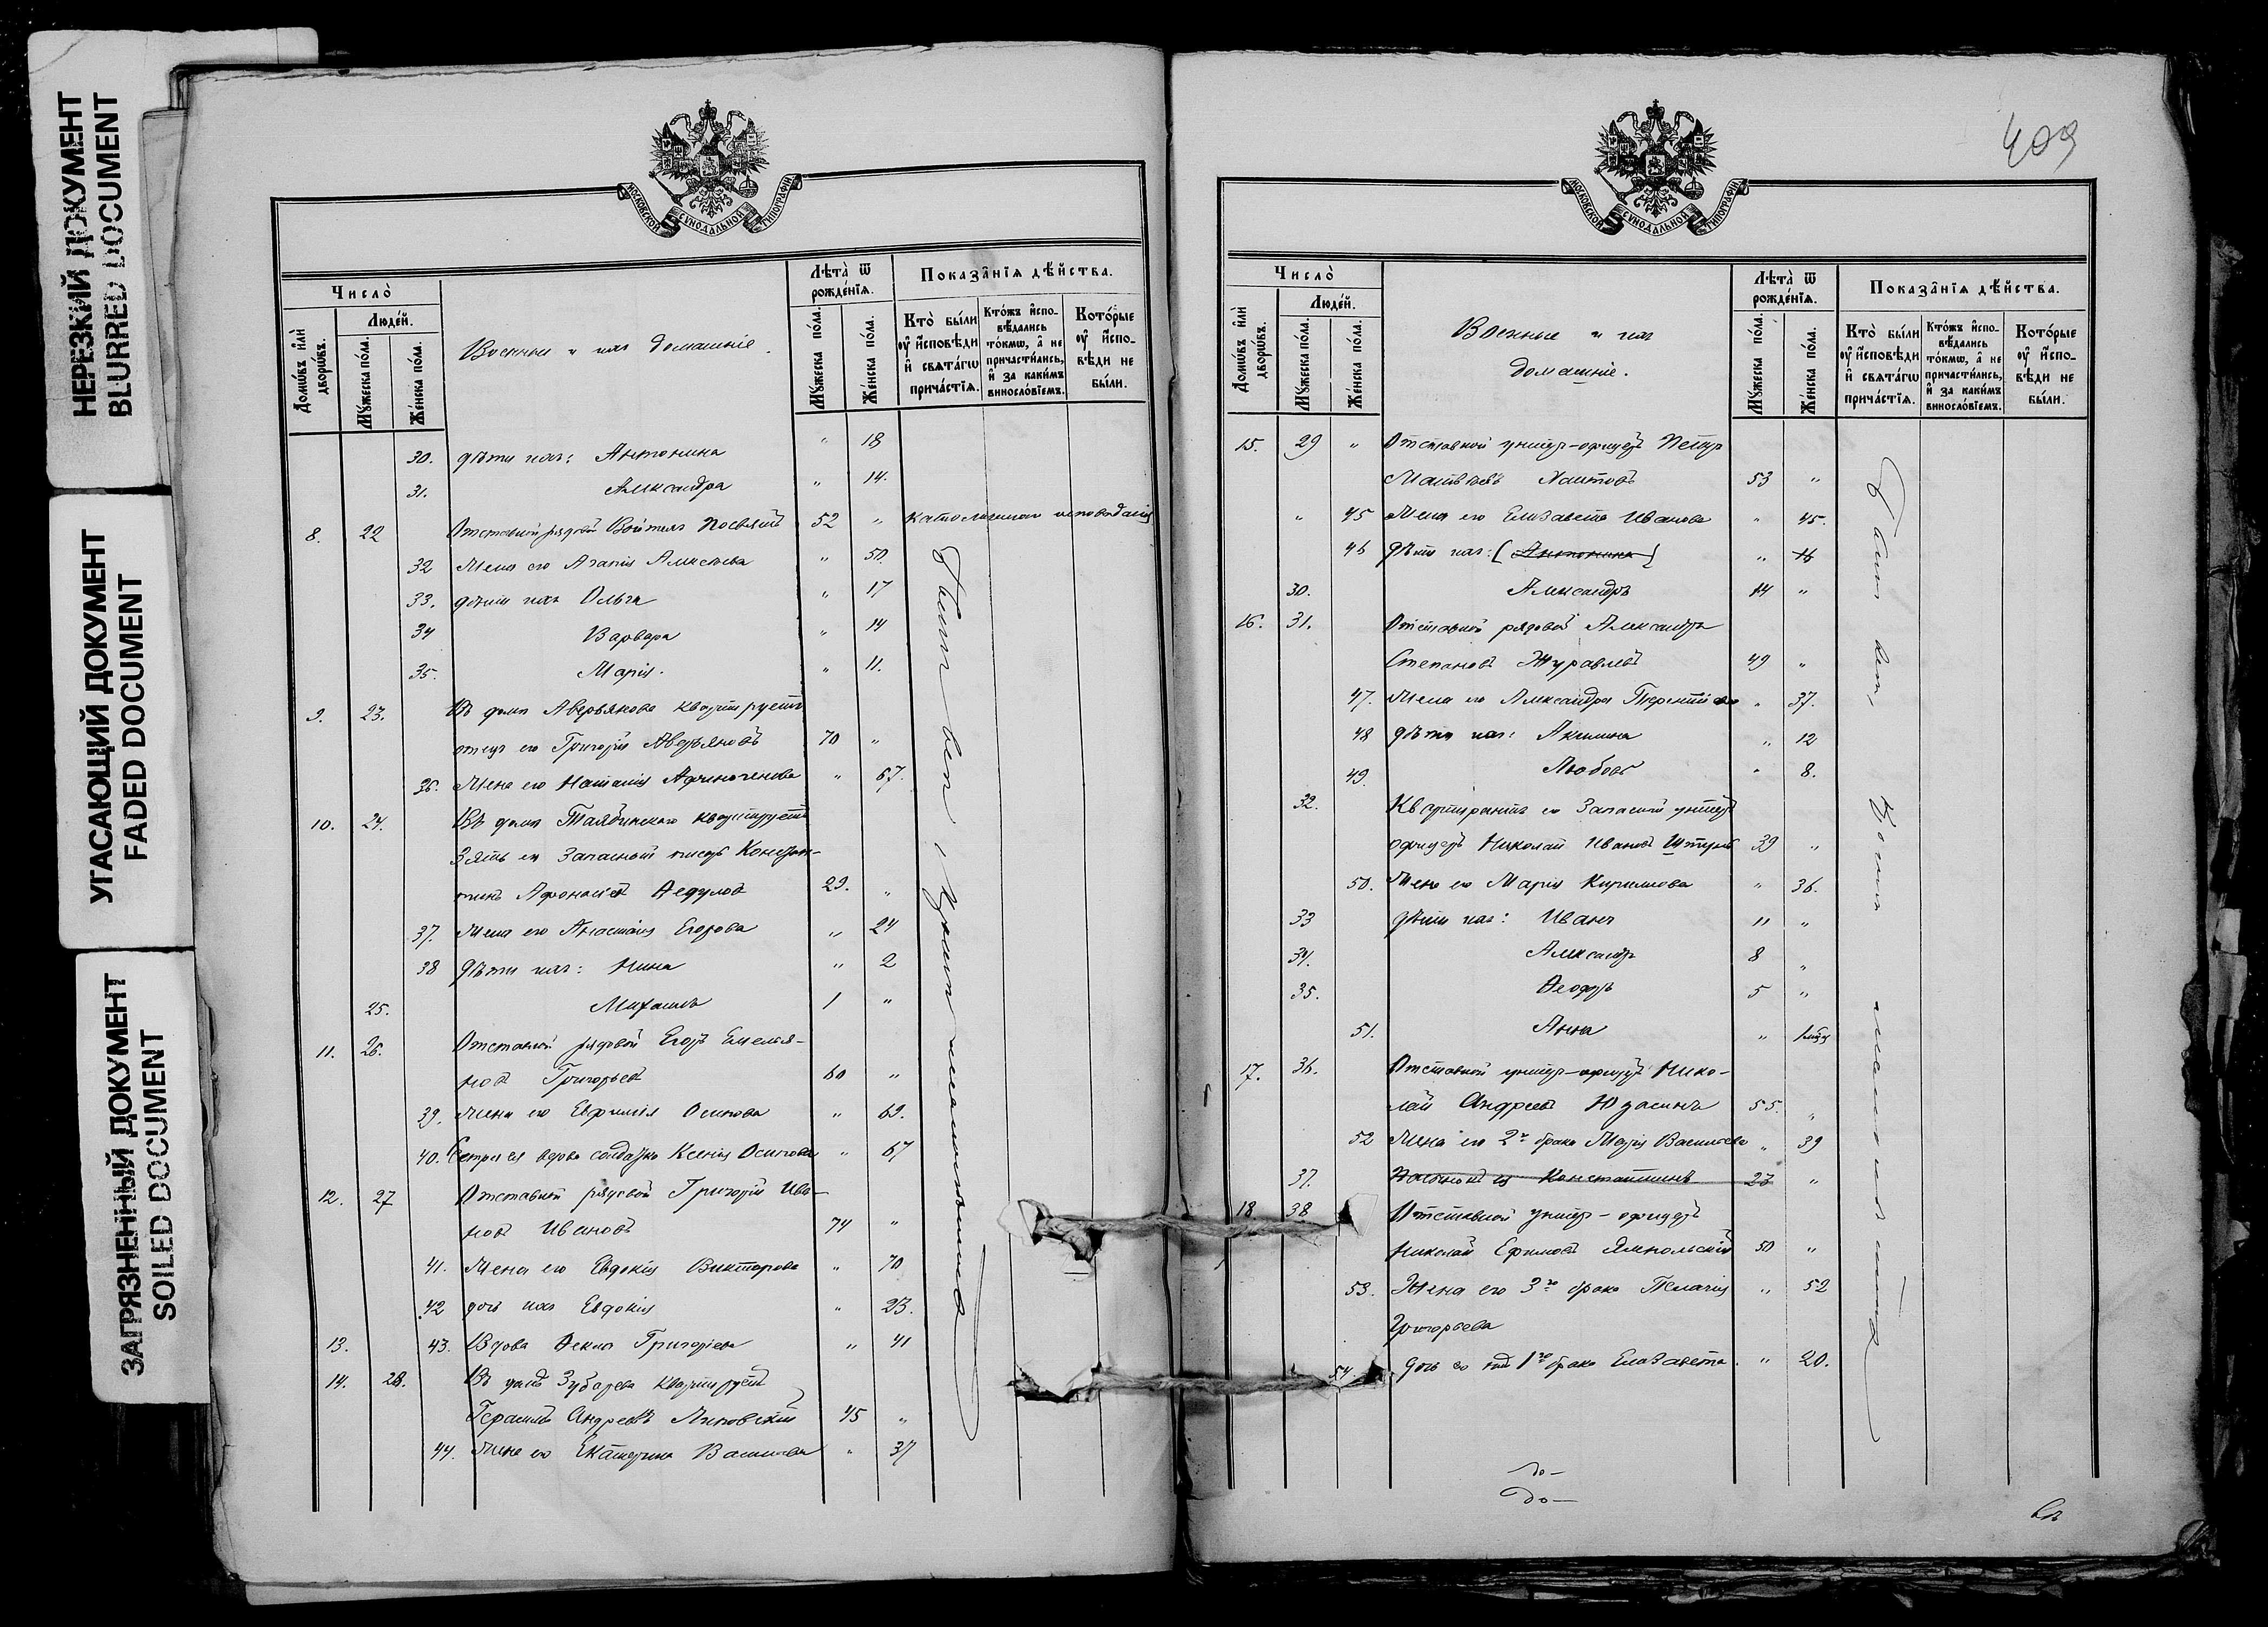 НЕРЕЗКИЙ ДОКУМЕНТ
BLURRED DOCUMENT
УГАСАЮЩИЙ ДОКУМЕНТ
FADED DOCUMENT
ЗАГРЯЗНЕННЫЙ ДОКУМЕНТ
SOILED DOCUMENT
МОСКОВСКОЙ СѴНОДАЛЬНОЙ ТИПОГРАФІИ
Число̀
Домѡ́въ и҆лѝ дворѡ́въ.
Люде́й.
Мꙋ́жеска по́ла.
Же́нска по́ла.
Военные и ихъ домашніе.
Лѣта̀ ѿ рожде́нїѧ.
Мꙋ́жеска по́ла.
Же́нска по́ла.
Показа̑нїѧ дѣ́йства.
Кто̀ бы́ли оу҆ и҆сповѣ́ди и҆ свѧта́гѡ прича́стїѧ.
Кто́жъ и҆спо­вѣ́дались то́кмѡ, а҆ не причасти́лись, и҆ за каки́мъ винословїемъ.
Кото́рые оу҆ и҆спо­вѣ́ди не бы́ли.
30. дѣти ихъ: Антонина " 18
31. Александра " 14.
8. 22 Отставной рядовой 52 " католическаго исповѣданія
32 Жена его Агапія Алексѣева " 50.
33. дѣти ихъ Ольга " 17
34 Варвара " 14
35. Марія. " 11.
9. 23. Въ домѣ Аверьянова квартируетъ
отецъ его Григорій Аверьяновъ 70 "
36. Жена его Наталія " 67.
10. 24. Въ домѣ квартируетъ
Зять ея Запасный писарь Констан-
тинъ Афонасіевъ Ѳедуловъ 29. "
37. Жена его Анастасія Егорова " 24
38 дѣти ихъ: Нина " 2
25. Михаилъ 1 "
11. 26. Отставной рядовой Егоръ Емелья-
новъ Григорьевъ 60 "
39. Жена его Евфимія Осипова " 69.
40. Сестра ея вдова солдатка Ксенія Осипова " 67
12. 27 Отставной рядовой Григорій Ива-
новъ Ивановъ 74 "
41. Жена его Евдокія Викторова " 70
42 дочь ихъ Евдокія " 23.
13. 43. Вдова Ѳекла Григоріева " 41
14. 28. Въ домѣ Зубарева квартируетъ
Герасимъ Андреевъ Липовскій 45 "
44. Жена его Екатерина Васильева " 37
409
МОСКОВСКОЙ СѴНОДАЛЬНОЙ ТИПОГРАФІИ
Число̀
Домѡ́въ и҆лѝ дворѡ́въ.
Люде́й.
Мꙋ́жеска по́ла.
Же́нска по́ла.
Военные и ихъ
домашніе.
Лѣта̀ ѿ рожде́нїѧ.
Мꙋ́жеска по́ла.
Же́нска по́ла.
Показа̑нїѧ дѣ́йства.
Кто̀ бы́ли оу҆ и҆сповѣ́ди и҆ свѧта́гѡ прича́стїѧ.
Кто́жъ и҆спо­вѣ́дались то́кмѡ, а҆ не причасти́лись, и҆ за каки́мъ винословїемъ.
Кото́рые оу҆ и҆спо­вѣ́ди не бы́ли.
15. 29 " Отставной унтеръ-офицеръ Петръ
Матвѣевъ 53 "
" 45 Жена его Елизавета Иванова " 45.
46 дѣти ихъ: (Антонина) " 16
30. Александръ 14 "
16. 31. Отставной рядовой Александръ
Степановъ Журавлевъ 49 "
47. Жена его Александра Терентіева " 37.
48 дѣти ихъ: Акилина " 12
49. Любовь " 8.
32. Квартирантъ его Запасный унтеръ
офицеръ Николай Ивановъ 39 "
50. Жена его Марія Кирилова " 36.
33 дѣти ихъ: Иванъ 11 "
34. Александръ 8 "
35. Ѳеодоръ 5 "
51. Анна "
17. 36. Отставной унтеръ-офицеръ Нико-
лай Андреевъ 55. "
52 Жена его 2го брака Марія Васильева " 39
37. Константинъ 23 "
18 38 Отставной унтеръ-офицеръ
Николай Ефимовъ Ямпольскій 50 "
53. Жена его 3го брака Пелагія " 52
Григорьева
54. дочь его 1го брака Елизавета. " 20.